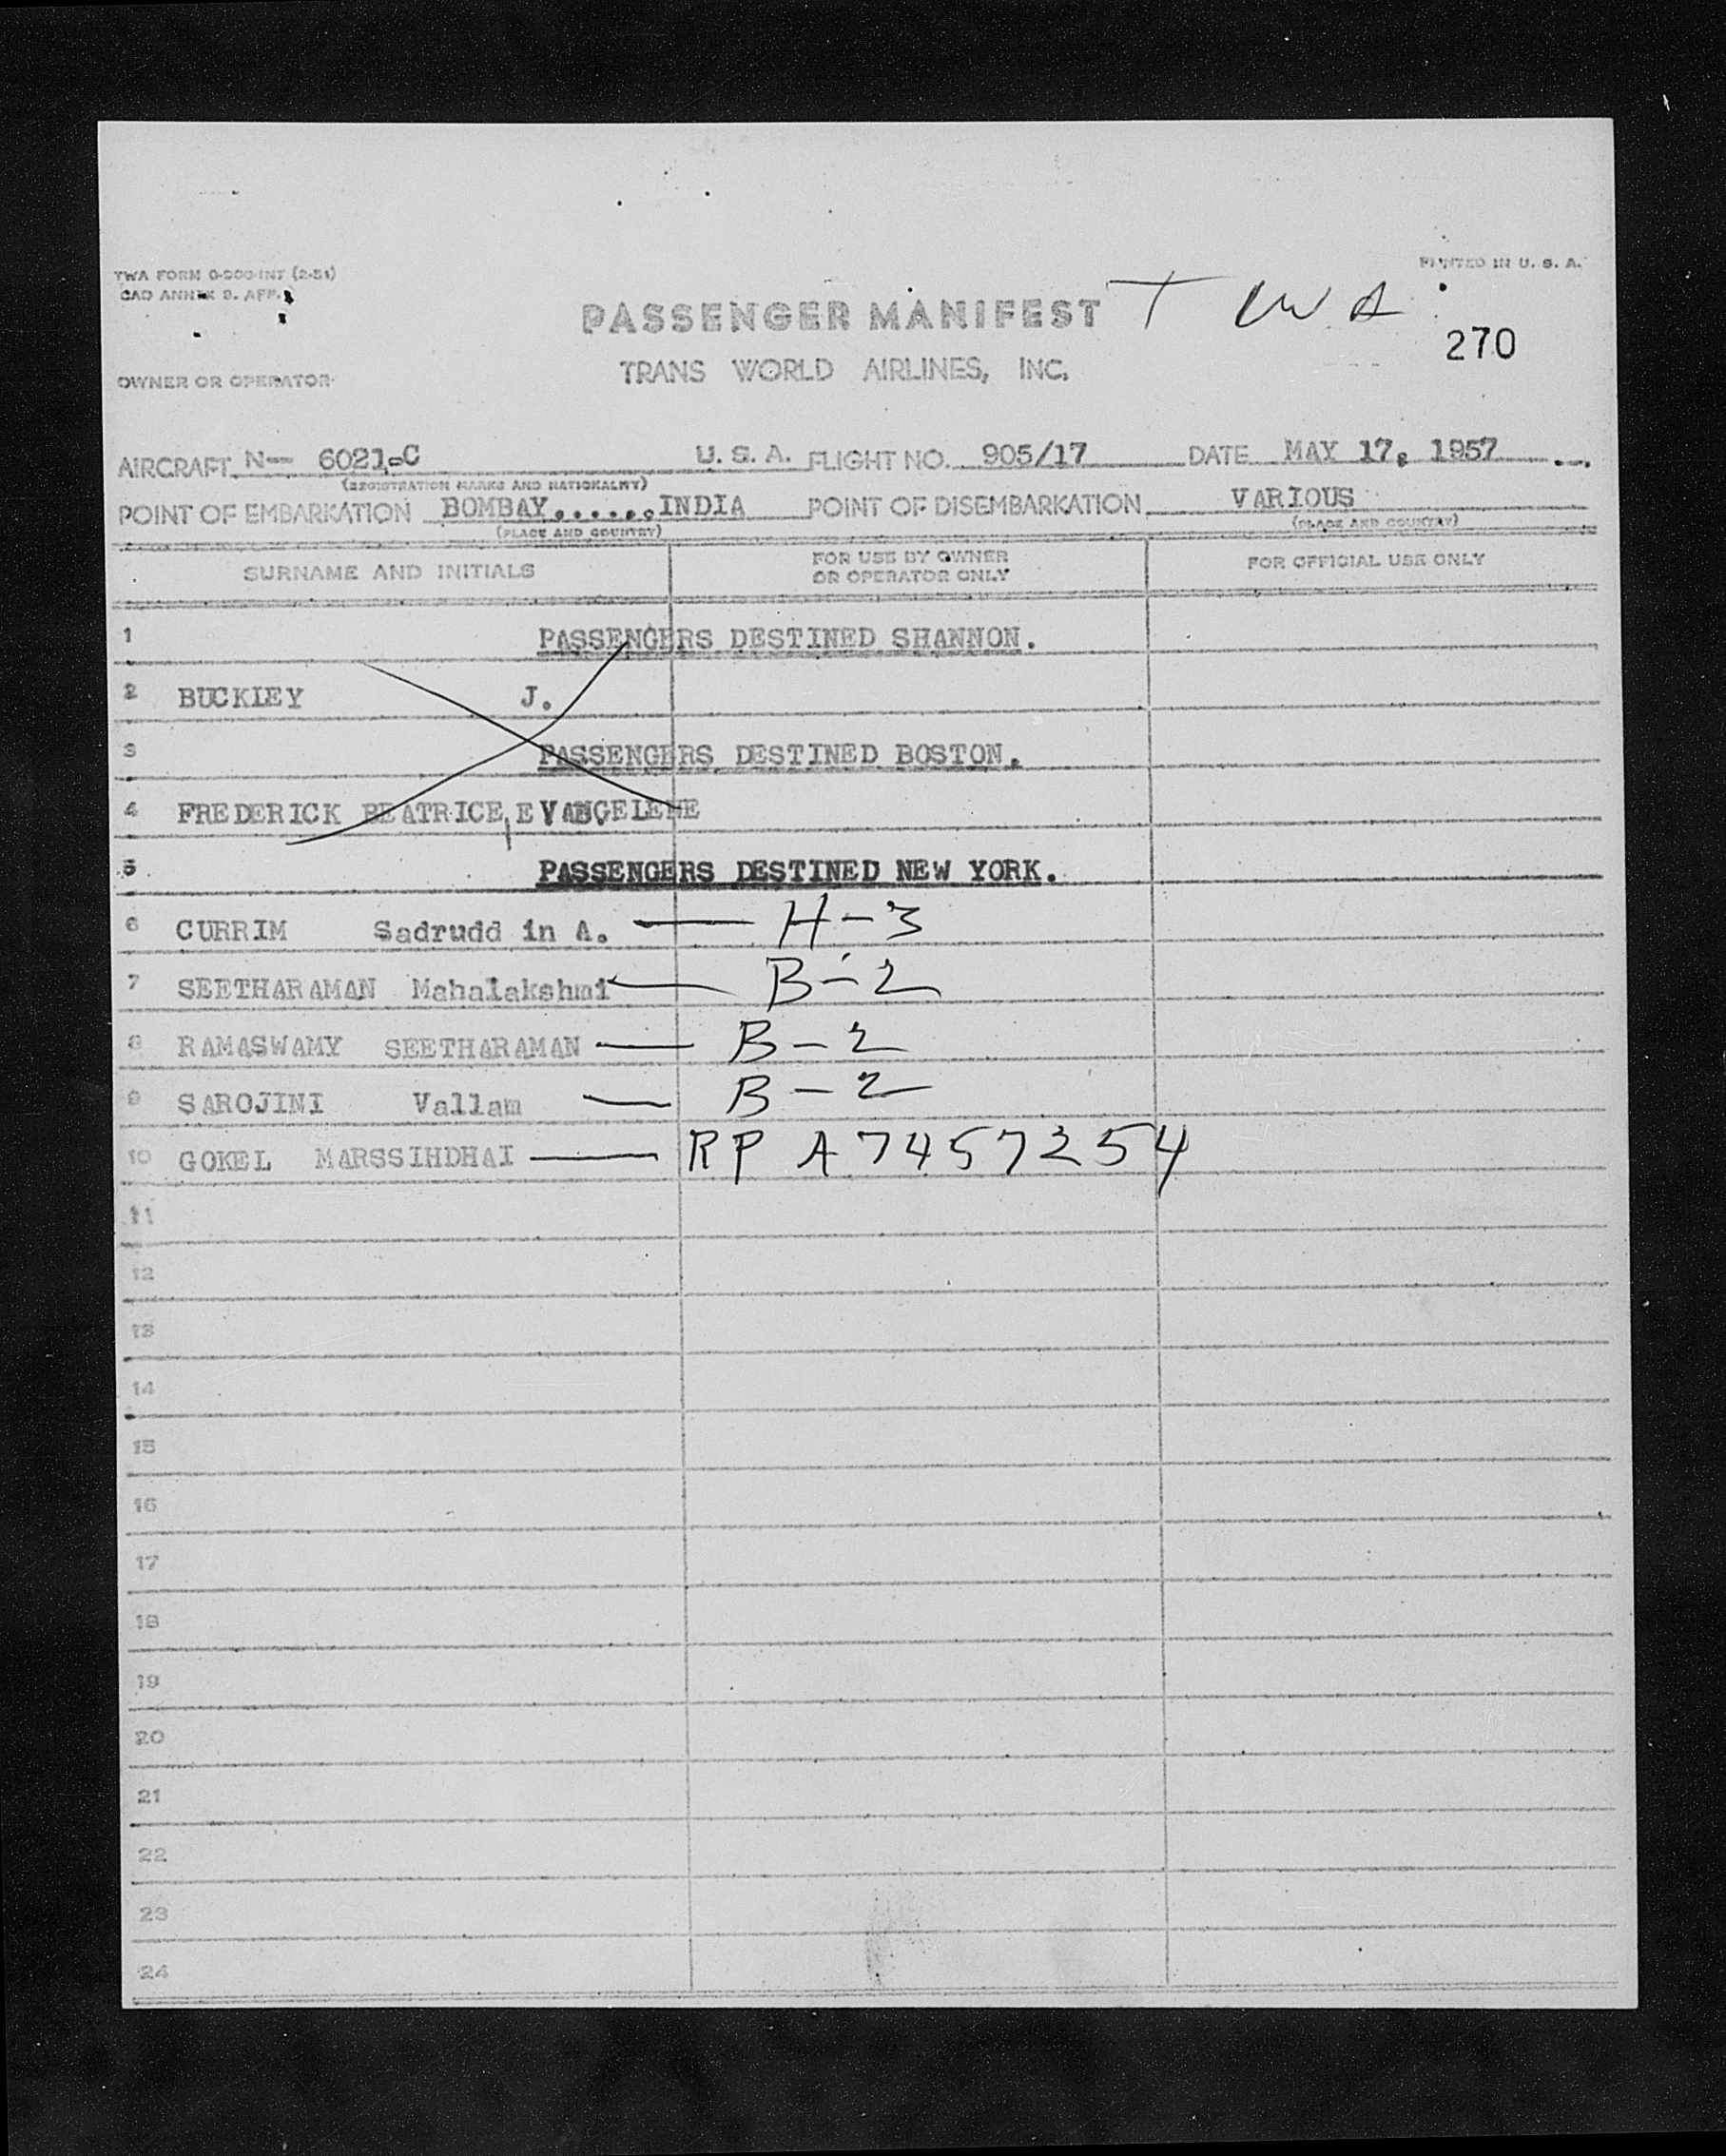 TWA FORM O-200-INT (2-51)
PRINTED IN U. S. A.
CAO ANNEX 9. APP.
PASSENGER MANIFEST T W A
270
TRANS WORLD AIRLINES, INC.
OWNER OR OPERATOR
AIRCRAFT N-- 6021-C U. S. A. FLIGHT NO. 905/17 DATE MAY 17, 1957
(REGISTRATION MARKS AND NATIONALITY)
POINT OF EMBARKATION BOMBAY......INDIA POINT OF DISEMBARKATION VARIOUS
(PLACE AND COUNTRY) (PLACE AND COUNTRY)
SURNAME AND INITIALS FOR USE BY OWNER OR OPERATOR ONLY FOR OFFICIAL USE ONLY
1 PASSENGERS DESTINED SHANNON.
2 BUCKLEY J.
3 PASSENGERS DESTINED BOSTON.
4 FREDERICK BEATRICE, EVANGELENE
5 PASSENGERS DESTINED NEW YORK.
6 CURRIM Sadrudd in A. — H-3
7 SEETHARAMAN Mahalakshmi — B-2
8 RAMASWAMY SEETHARAMAN — B-2
9 SAROJINI Vallam — B-2
10 GOKEL MARSSIHDHAI — RP A7457254
11
12
13
14
15
16
17
18
19
20
21
22
23
24